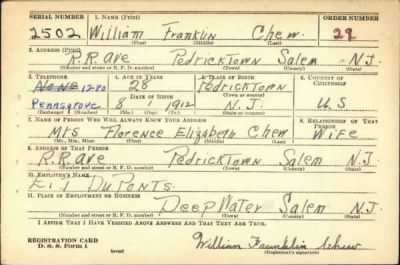 SERIAL NUMBER 1. NAME (Print) ORDER NUMBER
2502 William Franklin Chew 29
(First) (Middle) (Last)
2. ADDRESS (Print)
R.R. Ave Pedricktown Salem N.J.
(Number and street or R. F. D. number) (Town) (County) (State)
3. TELEPHONE 4. AGE IN YEARS 5. PLACE OF BIRTH 6. COUNTRY OF CITIZENSHIP
None 1280 28 Pedricktown
DATE OF BIRTH (Town or county)
Pennsgrove 8 1 1912 N.J. U S
(Exchange) (Number) (Mo.) (Day) (Yr.) (State or country)
7. NAME OF PERSON WHO WILL ALWAYS KNOW YOUR ADDRESS 8. RELATIONSHIP OF THAT PERSON
Mrs Florence Elizabeth Chew Wife
(Mr., Mrs., Miss) (First) (Middle) (Last)
9. ADDRESS OF THAT PERSON
R.R. Ave Pedricktown Salem N.J.
(Number and street or R. F. D. number) (Town) (County) (State)
10. EMPLOYER'S NAME
E.I DuPonts.
11. PLACE OF EMPLOYMENT OR BUSINESS
DeepWater Salem N.J.
(Number and street or R. F. D. number) (Town) (County) (State)
I AFFIRM THAT I HAVE VERIFIED ABOVE ANSWERS AND THAT THEY ARE TRUE.
REGISTRATION CARD
D. S. S. Form 1 William Franklin Chew
(over) (Registrant's signature)